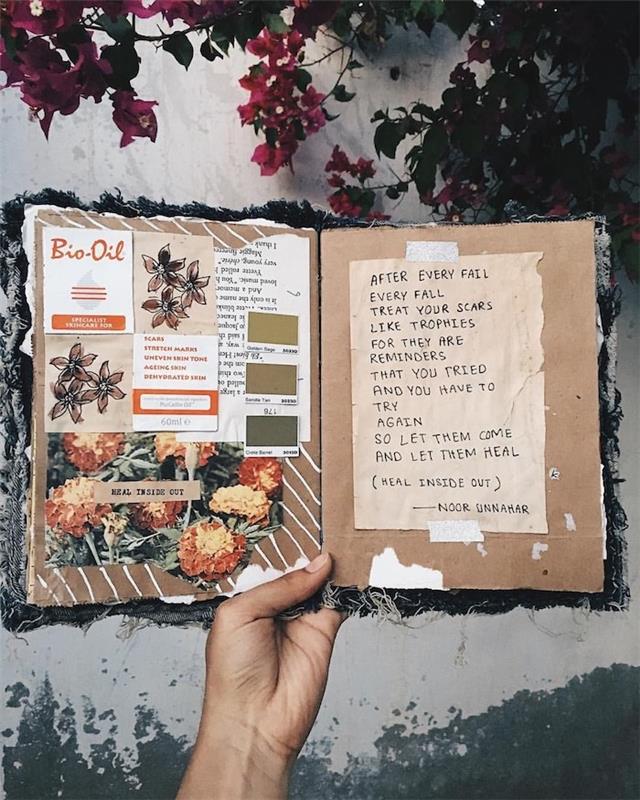 Bio-Oil
SPECIALIST
SKINCARE FOR
SCARS
STRETCH MARKS
UNEVEN SKIN TONE
AGEING SKIN
DEHYDRATED SKIN
PurCellin Oil™
60ml e
I thank
very young, chérie."
Yvette rolled
loved music. "You h
Golden Sage
Tan
176
HEAL INSIDE OUT
AFTER EVERY FAIL
EVERY FALL
TREAT YOUR SCARS
LIKE TROPHIES
FOR THEY ARE
REMINDERS
THAT YOU TRIED
AND YOU HAVE TO
TRY
AGAIN
SO LET THEM COME
AND LET THEM HEAL
(HEAL INSIDE OUT)
—NOOR UNNAHAR